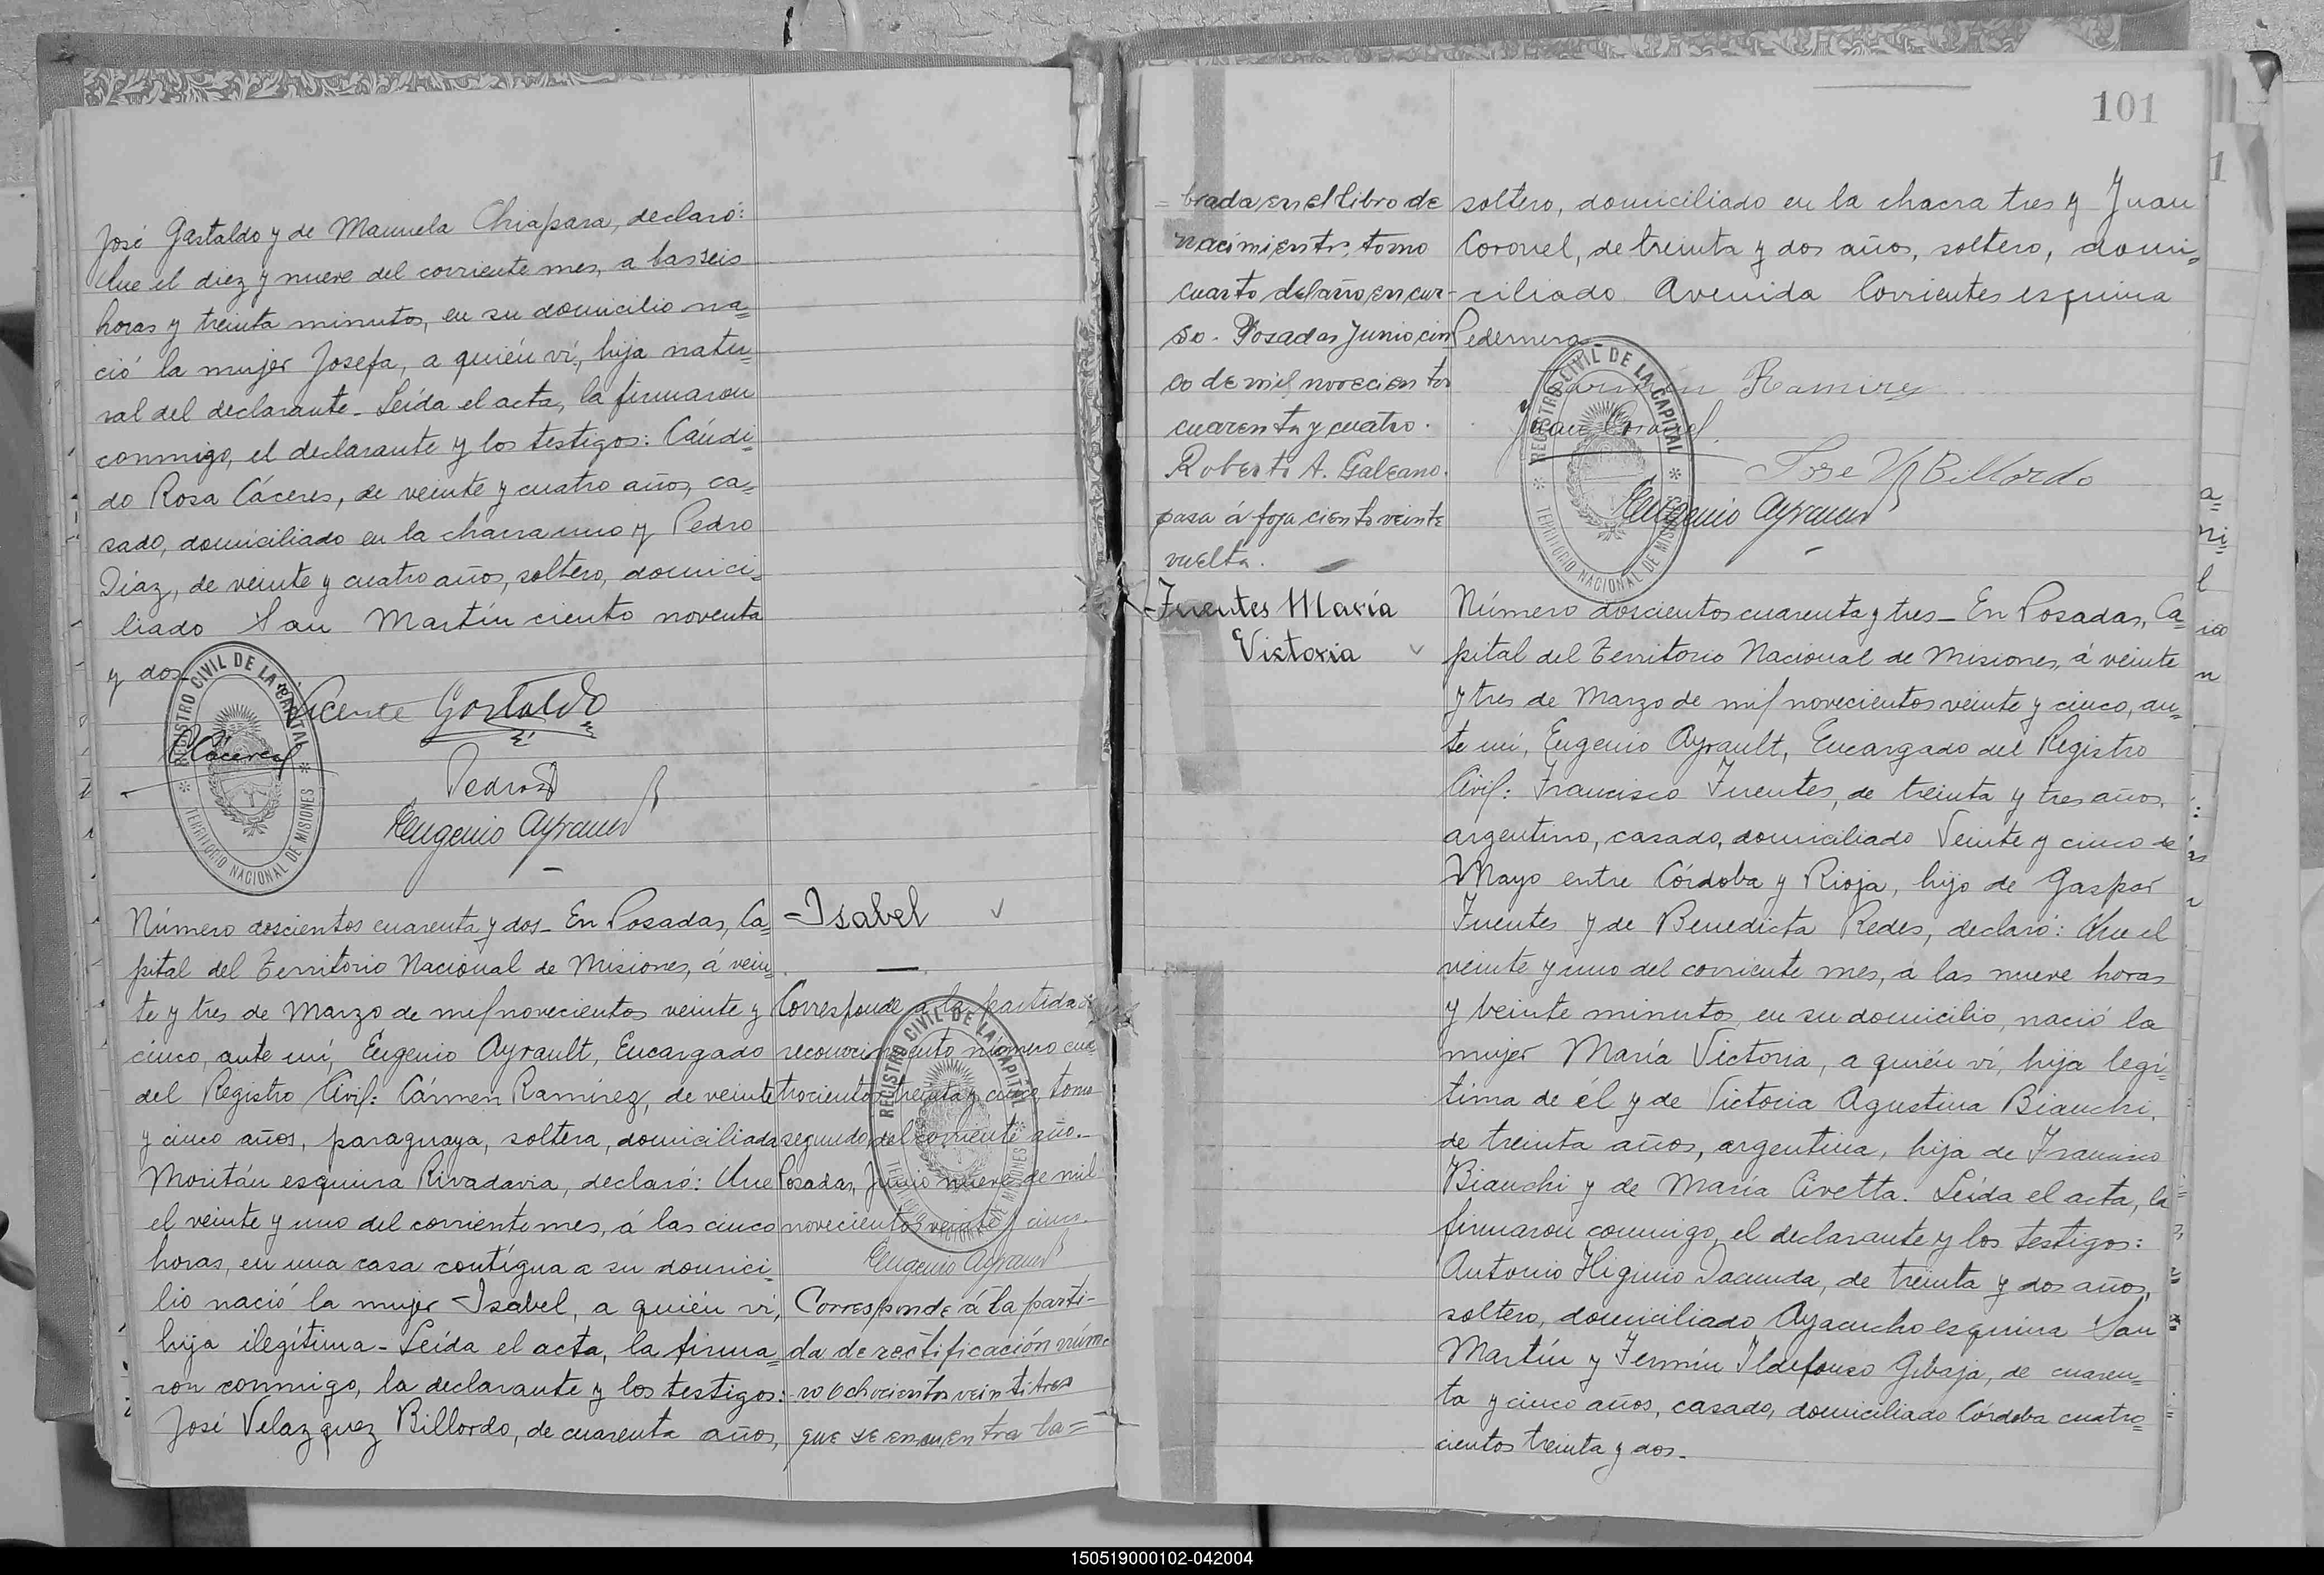 José Gastaldo y de Manuela Chiapara, declaró:
Que el diez y nueve del corriente mes, a las seis
horas y treinta minutos, en su domicilio na=
ció la mujer Josefa, a quién ví, hija natu=
ral del declarante. Leída el acta, la firmaron
conmigo, el declarante y los testigos: Cándi=
do Rosa Cáceres, de veinte y cuatro años, ca=
sado, domiciliado en la chacra uno y Pedro
Díaz, de veinte y cuatro años, soltero, domici=
liado San Martín ciento noventa
y dos.
REGISTRO CIVIL DE LA CAPITAL
TERRITORIO NACIONAL DE MISIONES
Vicente Gastaldo
Cáceres
Pedro
Eugenio Ayrault
Número doscientos cuarenta y dos_ En Posadas, Ca=
pital del Territorio Nacional de Misiones, á vein=
te y tres de Marzo de mil novecientos veinte y
cinco, ante mí, Eugenio Ayrault, Encargado
del Registro Civil: Cármen Ramírez, de veinte
y cinco años, paraguaya, soltera, domiciliada
Moritán esquina Rivadavia, declaró: Que
el veinte y uno del corriente mes, á las cinco
horas, en una casa contígua a su domici=
lio nació la mujer Isabel, a quién ví,
hija ilegítima_ Leída el acta, la firma=
ron conmigo, la declarante y los testigos:
José Velazquez Billordo, de cuarenta años,
=Isabel
Corresponde a la partida de
reconocimiento número cua=
trocientos treinta y cinco, tomo
segundo, del corriente año._
Posadas, Junio nueve de mil
novecientos veinte y cinco.
REGISTRO CIVIL DE LA CAPITAL
TERRITORIO NACIONAL DE MISIONES
Eugenio Ayrault
Corresponde á la parti-
da de rectificación núme
ro ochocientos veintitres
que se encuentra la=
101
=brada, en el libro de
nacimientos, tomo
cuarto del año en cur-
so. Posadas Junio cin
co de mil novecientos
cuarenta y cuatro.
Roberto A. Galeano.
pasa á foja ciento veinte
vuelta.
soltero, domiciliado en la chacra tres y Juan
Coronel, de treinta y dos años, soltero, domi=
ciliado Avenida Corrientes esquina
Pedernera_
REGISTRO CIVIL DE LA CAPITAL
TERRITORIO NACIONAL DE MISIONES
Carmen Ramirez
Juan Coronel
Jose V Billordo
Eugenio Ayrault
Fuentes María
Victoria
Número doscientos cuarenta y tres_ En Posadas, Ca=
pital del Territorio Nacional de Misiones, á veinte
y tres de Marzo de mil novecientos veinte y cinco, an=
te mí, Eugenio Ayrault, Encargado del Registro
Civil: Francisco Fuentes, de treinta y tres años,
argentino, casado, domiciliado Veinte y cinco de
Mayo entre Córdoba y Rioja, hijo de Gaspar
Fuentes y de Benedicta Redes, declaró: Que el
veinte y uno del corriente mes, á las nueve horas
y veinte minutos, en su domicilio, nació la
mujer María Victoria, a quién ví, hija legí=
tima de él y de Victoria Agustina Bianchi,
de treinta años, argentina, hija de Francisco
Bianchi y de María Civetta. Leída el acta, la
firmaron conmigo, el declarante y los testigos:
Antonio Higinio Dacunda, de treinta y dos años,
soltero, domiciliado Ayacucho esquina San
Martín y Fermín Ildefonso Gibaja, de cuaren=
ta y cinco años, casado, domiciliado Córdoba cuatro=
cientos treinta y dos._
150519000102-042004